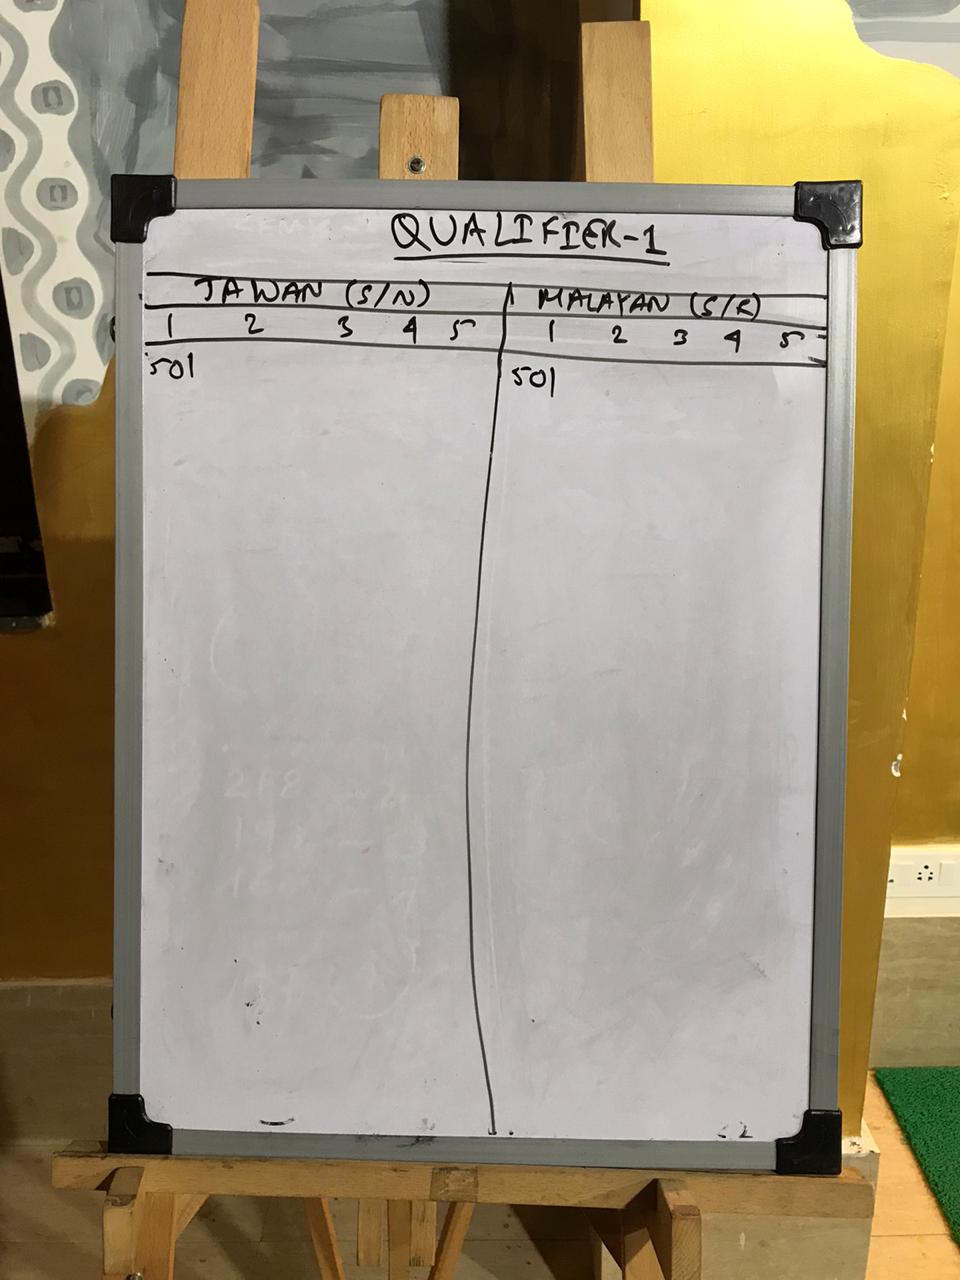 QUALIFIER-1
JAWAN (S/N) MALAYAN (S/R)
1 2 3 4 5 1 2 3 4 5
501 501